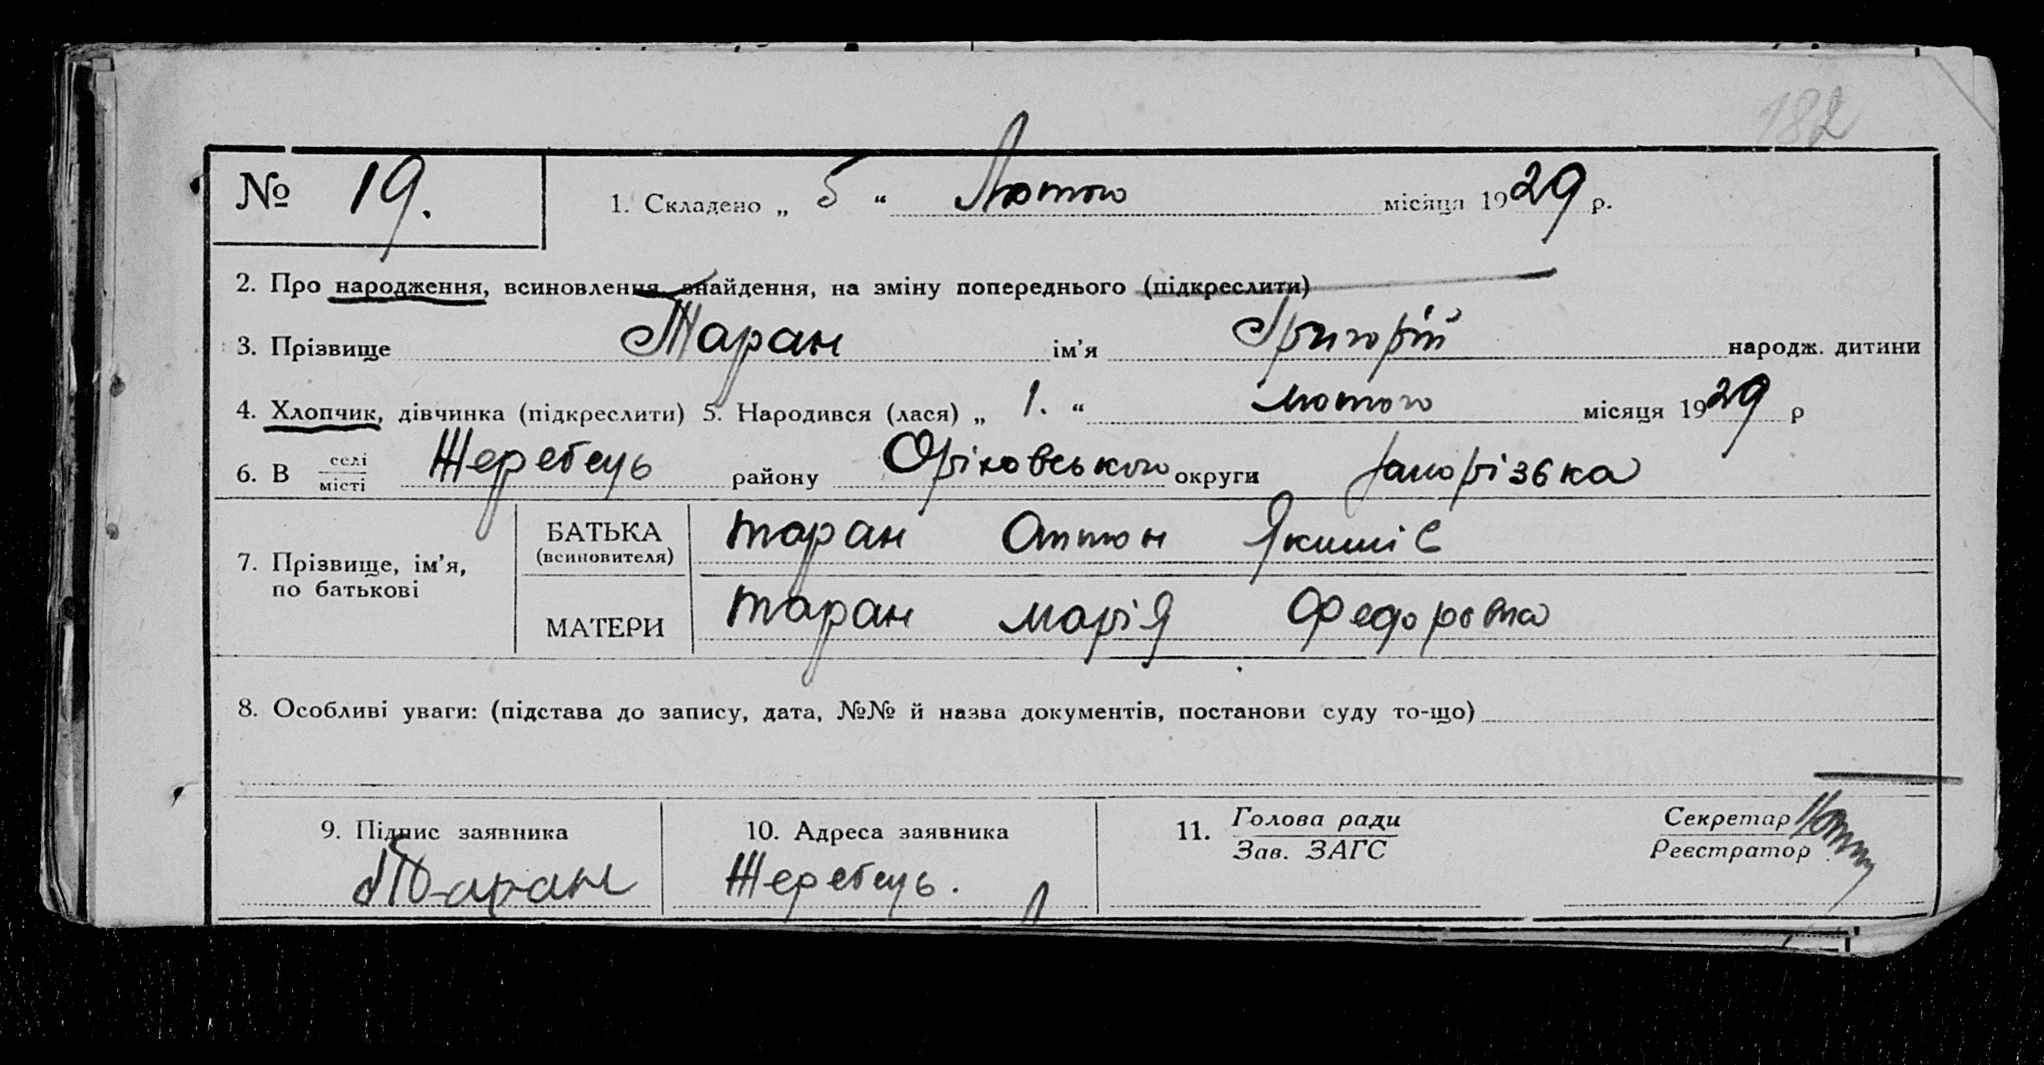 182
№ 19. 1. Складено „ 5 “ Лютого місяця 1929 р.
2. Про народження, всиновлення, знайдення, на зміну попереднього (підкреслити)
3. Прізвище Таран ім'я Григорій народж. дитини
4. Хлопчик, дівчинка (підкреслити) 5. Народився (лася) „ 1. “ лютого місяця 1929 р
6. В селі місті Жеребець району Оріховського округи Запорізька
7. Прізвище, ім'я, по батькові
БАТЬКА (всиновителя) Таран Антон Якимів
МАТЕРИ Таран Марія Федоровна
8. Особливі уваги: (підстава до запису, дата, №№ й назва документів, постанови суду то-що)
9. Підпис заявника 10. Адреса заявника 11. Голова ради Секретар
Зав. ЗАГС Реєстратор
Таран Жеребець.